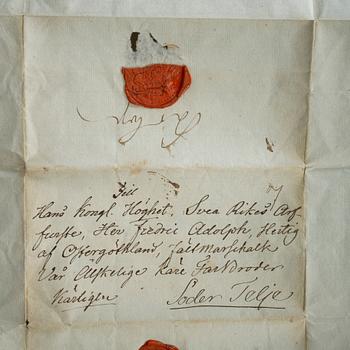 Till
Hans Kongl. Höghet, Svea Rikes Arf-
furste, Her Fredric Adolph, Hertig
af Östergöthland, Fält Marschalk
Vår Älskelige Käre Farbroder
Kärligen
Söder Telje